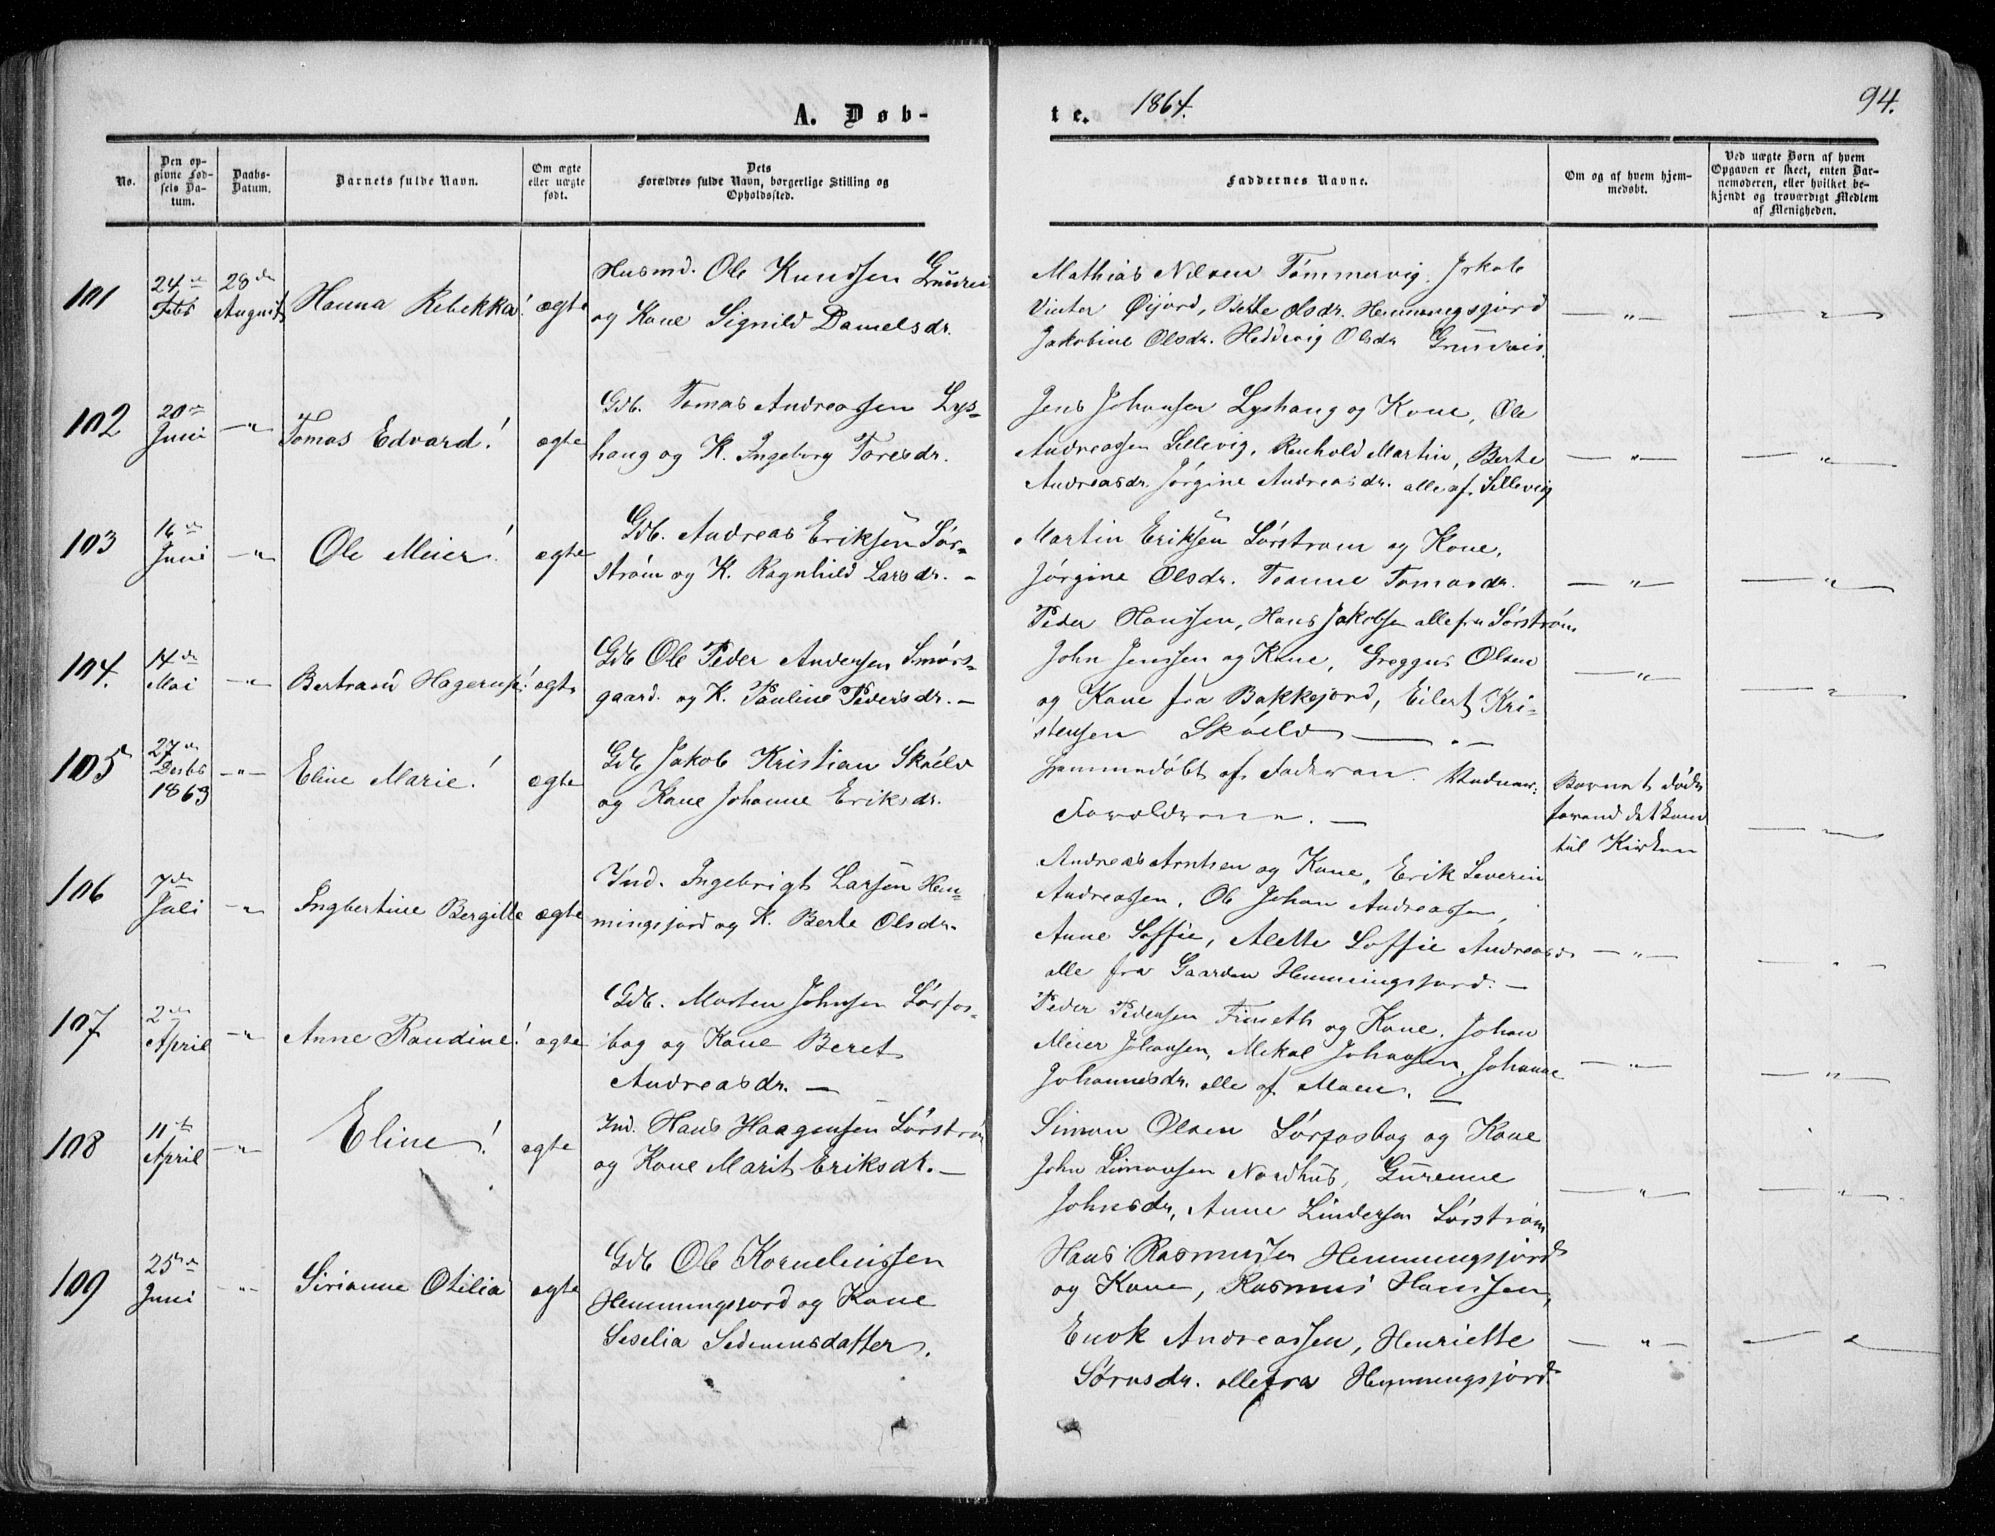 A. Døb-
te.
1864.
94.
No.
Den op-
givne Fød-
sels Da-
tum.
Daabs-
Datum.
Barnets fulde Navn.
Om ægte
eller uægte
født.
Dets
Forældres fulde Navn, borgerlige Stilling og
Opholdssted.
Faddernes Navne.
Om og af hvem hjem-
medøbt.
Ved uægte Børn af hvem
Opgaven er skeet, enten Bar-
nemoderen, eller hvilket be-
kjendt og troværdigt Medlem
af Menigheden.
101
24de
Feb
28de
August
Hanna Rebekka!
ægte
Husmd. Ole Knudsen
og Kone Signild Danielsdr.
Mathias Nilsen Tømmervig. Jakob
Vinter Øijord, Berte Olsdr. Hemmingsjord
Jakobine Olsdr. Heddevig Olsdr
— " —
— " —
102
20de
Juni
— " —
Tomas Edvard!
ægte
Gdb. Tomas Andreassen Lys-
haug og K. Ingeborg Toresdr.
Jens Johansen Lyshaug og Kone, Ole
Andreassen Sillevig, Renhold Martin, Berte
Andreasdr. Jørgine Andreasdr. alle af Sillevig
— " —
— " —
103
16de
Juni
— " —
Ole Meier!
ægte
Gdb. Andreas Eriksen Sør-
strøm og K. Ragnhild Larsdr. —
Martin Eriksen Sørstrøm og Kone,
Jørgine Olsdr. Tomasdr.
Peder Hanssen, Hans Jakobsen alle fra Sørstrøm
— " —
— " —
104.
14de
Mai
— " —
Bertraud Hagerup!
ægte
Gdb Ole Peder Andersen Smørs-
gaard. og K. Pauline Pedersdr. —
John Jenssen og Kone, Greggus Olsen
og Kone fra Bakkejord, Eilert Kri-
stensen Skóelv — " —
— " —
— " —
105
27de
Decbr
1863
— " —
Eline Marie!
ægte
Gdb Jakob Kristian Skóelv
og Kone Johanne Eriksdr.
Hjemmedøbt af Faderen.
Forældrene. —
Barnet døde
forend det kom
til Kirken
— " —
106
7de
Juli
— " —
Ingbertine Bergitte
ægte
Ind. Ingebrigt Larsen Hem-
mingsjord og K. Berte Olsdr.
Andreas Arntsen og Kone, Erik Severin
Andreassen, Ole Johan Andreassen,
Anne Soffie, Alette Soffie Andreasdr
alle fra Gaarden Hemmingsjord. —
— " —
— " —
107
2den
April
— " —
Anne Randine!
ægte
Gdb. Morten Johnsen Sørfos-
bag og Kone Beret
Andreasdr. —
Peder Pedersen Finseth og Kone, Johan
Meier Johansen, Mekal Johansen, Johanne
Johannesdr. alle af Moen. —
— " —
— " —
108
11te
April
— " —
Eline!
ægte
Ind. Hans Haagensen Sørstrøm
og Kone Marit Eriksdr. —
Simon Olsen Sørfosbag og Kone
John Simonsen Nordhus, Gurenne
Johnsdr, Anne Lindersen Sørstrøm
— " —
— " —
109
25de
Juni
— " —
Sirianne Otilia
ægte
Gdb Ole Korneliussen
Hemmingsjord og Kone
Seselia Sedenensdatter.
Hans Rasmussen Hemmingsjord
og Kone, Rasmus Hanssen,
Enok Andreassen, Henriette
Sørnsdr. alle fra Hemmingsjord.
— " —
— " —